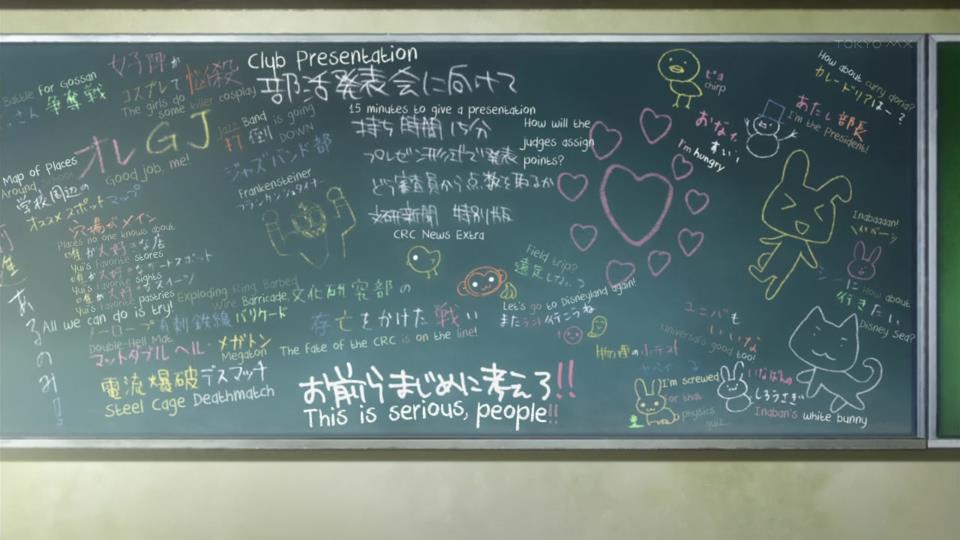 TOKYO MX
女子陣が
コスプレで悩殺
The girls do some killer cosplay
Battle for Gossan
争奪戦
Club Presentation
部活発表会に向けて
15 minutes to give a presentation
持ち時間15分
プレゼン形式で発表
How will the judges assign points?
どう審査員から点数を取るか
文研新聞 特別版
CRC News Extra
オレGJ
Good job, me!
Jazz Band is going DOWN
打倒
ジャズバンド部
Frankensteiner
フランケンシュタイナー
Map of Places Around
学校周辺の
オススメスポットマップ
穴場がメイン
Places no one knows about
唯が大好きな店
Yui's favorite stores
Yui's favorite sights
Yui's favorite pastries
All we can do is try!
あるのみ!
Exploding Ring, Barbed Wire Barricade,
有刺鉄線バリケード
Double-Hell Mat
マットダブルヘル・メガトン
Megaton
電流爆破デスマッチ
Steel Cage Deathmatch
文化研究部の
存亡をかけた戦い
The fate of the CRC is on the line!
お前らまじめに考えろ!!
This is serious, people!!
ぴよ
chirp
おなかすいた
I'm hungry
How about curry doria?
カレードリアは~?
あたし部長
I'm the President!
Inabaaaan!
Field trip?
遠足して
Let's go to Disneyland again!
またランド行こうね
シーに行きたい
How about Disney Sea?
ユニバも
いいな
Universal's good too!
物理の小テスト
ヤバイ
I'm screwed for that physics quiz
いなばんの
しろうさぎ
Inaban's white bunny